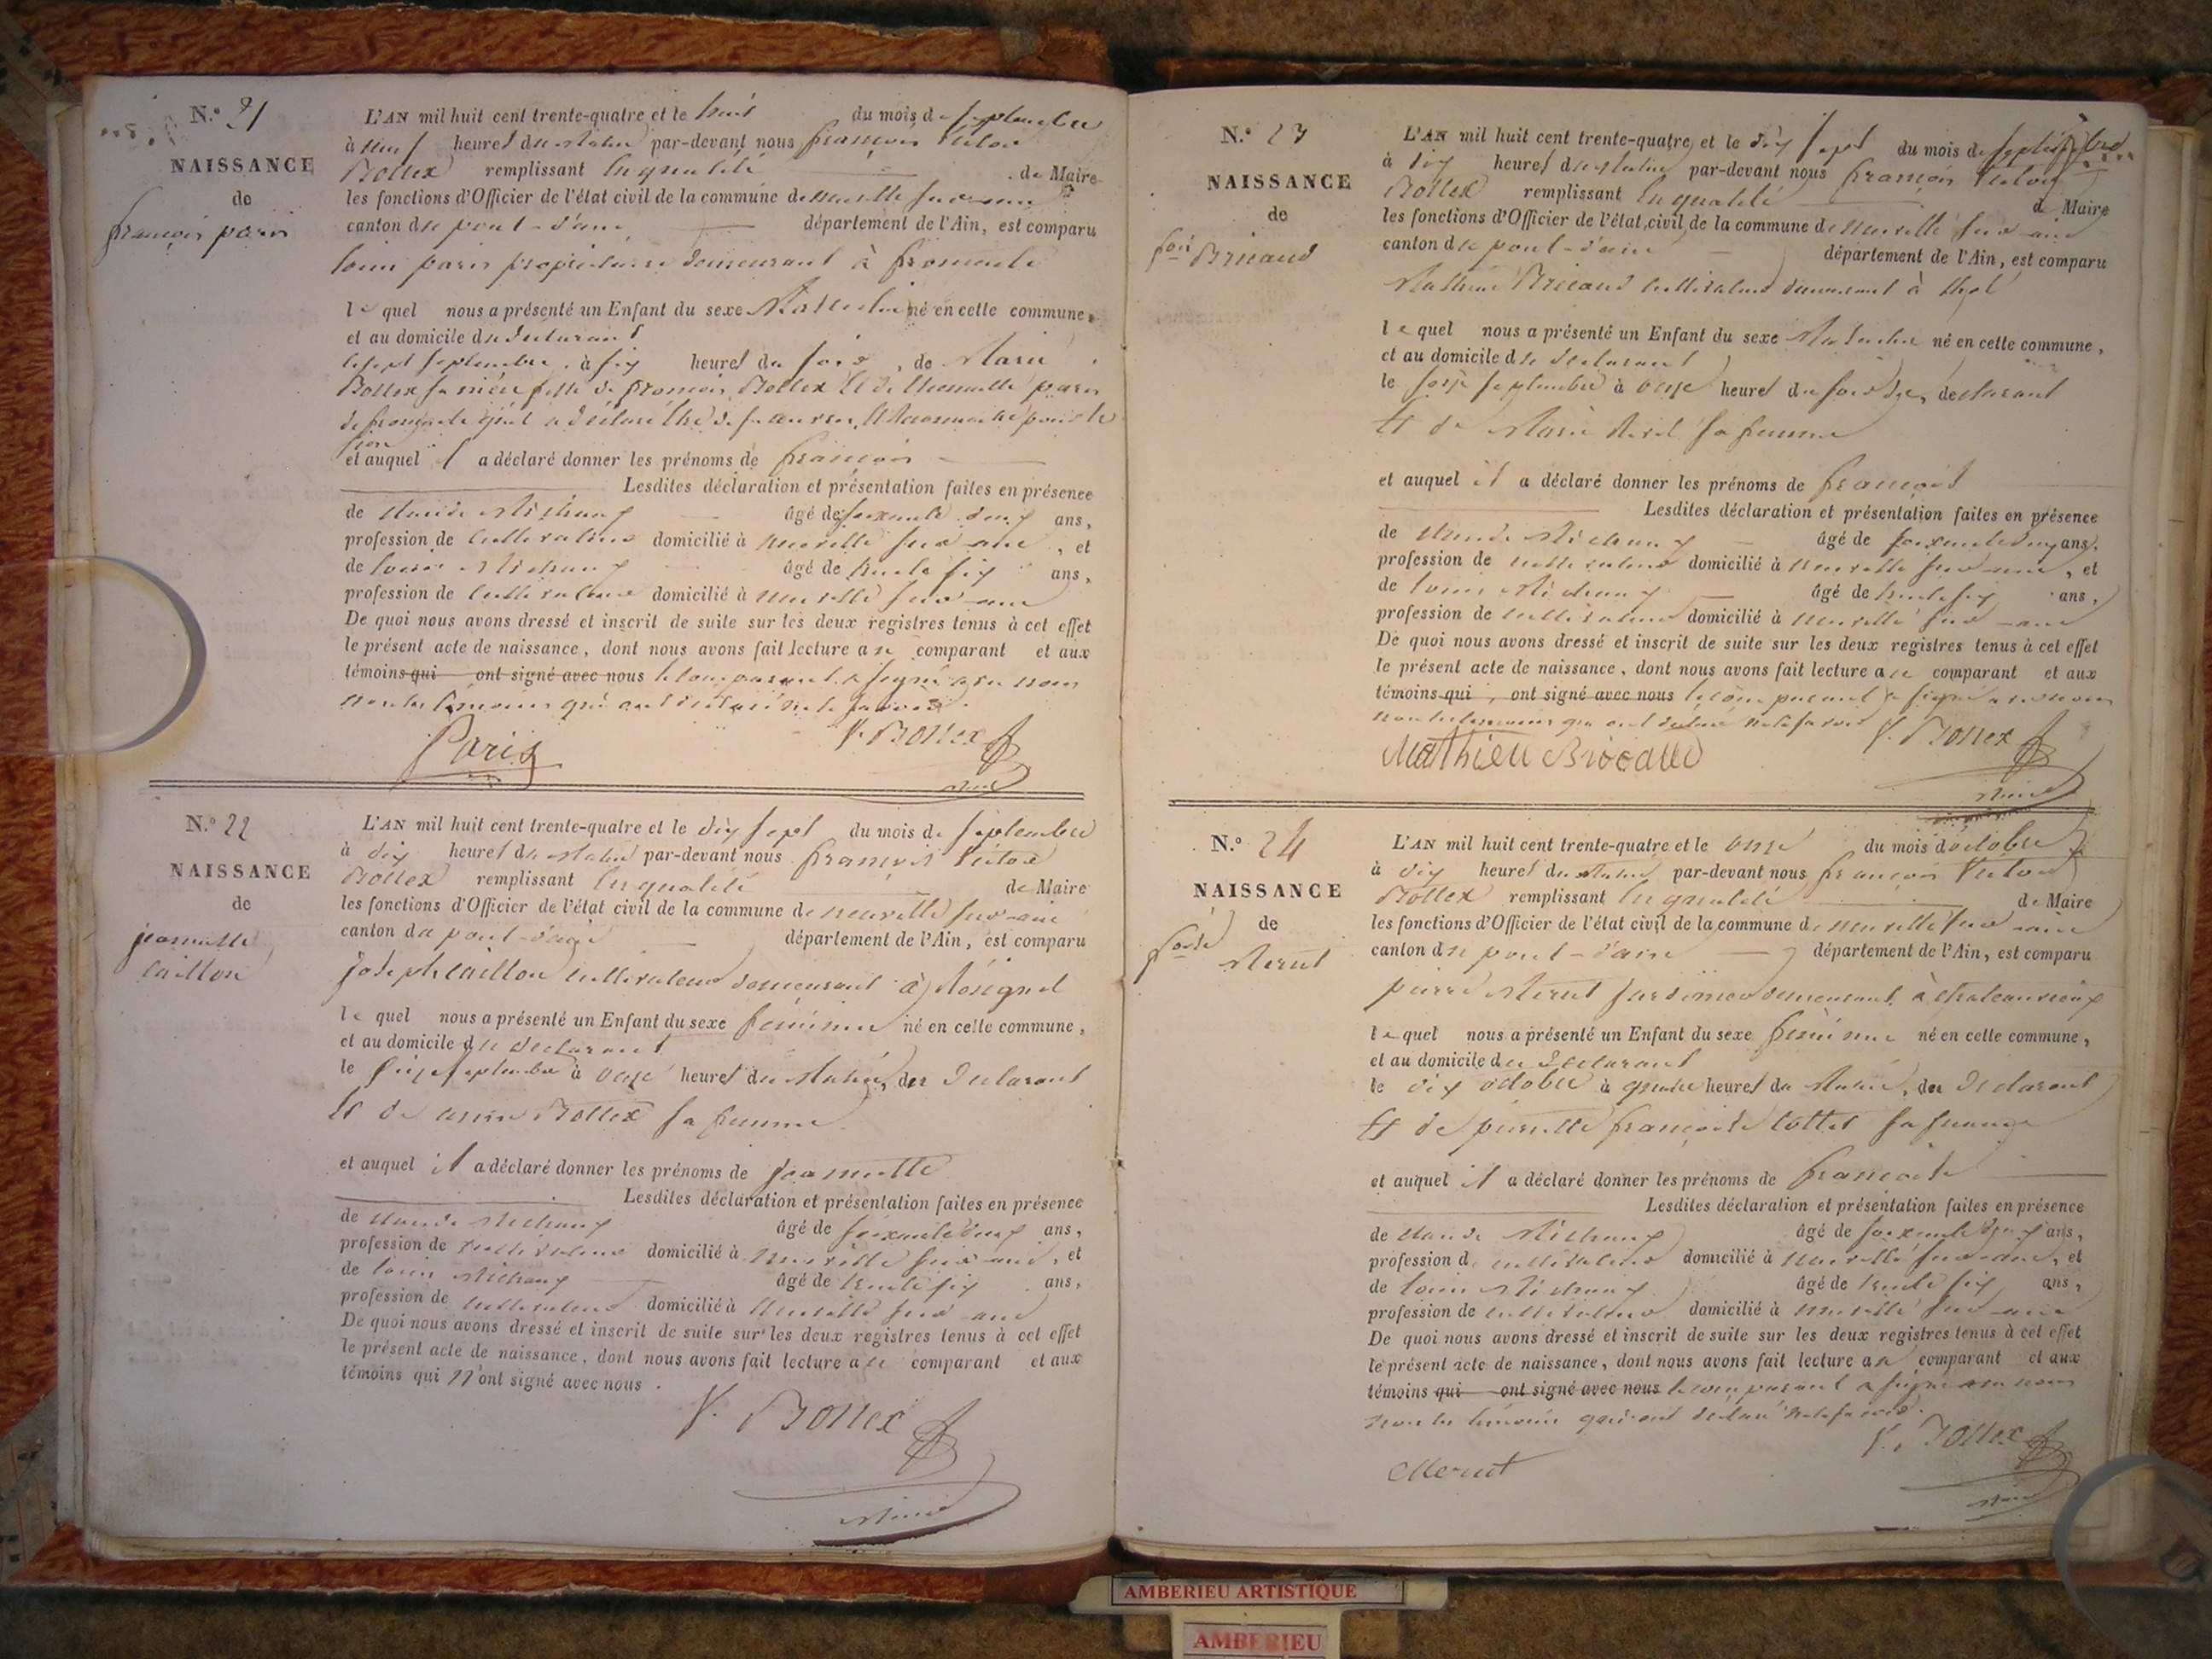 N.° 21
NAISSANCE
de
françois paris
L'AN mil huit cent trente-quatre et le huit du mois de septembre
à neuf heures du matin par-devant nous françois victor
Bollex remplissant en qualité de Maire
les fonctions d'Officier de l'état civil de la commune de neuville sur ain
canton de pont-d'ain département de l'Ain, est comparu
louis paris propriétaire demeurant à fromente
le quel nous a présenté un Enfant du sexe Masculin né en cette commune,
et au domicile du déclarant
le sept septembre à six heures du soir, de Marie
Bollex sa mère fille de françois Bollex et de paris
de fromente qu'il a déclaré être de ses œuvres et reconnaître pour le
sien
et auquel il a déclaré donner les prénoms de françois
Lesdites déclaration et présentation faites en présence
de claude Michaux âgé de soixante deux ans,
profession de cultivateur domicilié à neuville sur ain, et
de louis Michaux âgé de trente six ans,
profession de cultivateur domicilié à neuville sur ain
De quoi nous avons dressé et inscrit de suite sur les deux registres tenus à cet effet
le présent acte de naissance, dont nous avons fait lecture au comparant et aux
témoins qui ont signé avec nous le comparant a signé avec nous
non les témoins qui ont déclaré ne le savoir.
Paris V. Bollex
Maire
N.° 22
NAISSANCE
de
jeannette
caillon
L'AN mil huit cent trente-quatre et le dix sept du mois de septembre
à dix heures du matin par-devant nous françois victor
Bollex remplissant en qualité de Maire
les fonctions d'Officier de l'état civil de la commune de neuville sur ain
canton de pont-d'ain département de l'Ain, est comparu
joseph caillon cultivateur demeurant à Rosignol
le quel nous a présenté un Enfant du sexe féminin né en cette commune,
et au domicile du déclarant
le seize septembre à onze heures du matin, du déclarant
et de Bollex sa femme
et auquel il a déclaré donner les prénoms de jeannette
Lesdites déclaration et présentation faites en présence
de claude Michaux âgé de soixante deux ans,
profession de cultivateur domicilié à neuville sur ain, et
de louis Michaux âgé de trente six ans,
profession de cultivateur domicilié à neuville sur ain
De quoi nous avons dressé et inscrit de suite sur les deux registres tenus à cet effet
le présent acte de naissance, dont nous avons fait lecture au comparant et aux
témoins qui n'ont signé avec nous.
V. Bollex
Maire
N.° 23
NAISSANCE
de
fois Bricaud
L'AN mil huit cent trente-quatre et le dix sept du mois de septembre
à dix heures du matin par-devant nous françois victor
Bollex remplissant en qualité de Maire
les fonctions d'Officier de l'état civil de la commune de neuville sur ain
canton de pont-d'ain département de l'Ain, est comparu
Mathieu Bricaud cultivateur demeurant à thol
le quel nous a présenté un Enfant du sexe Masculin né en cette commune,
et au domicile du déclarant
le seize septembre à onze heures du soir du, déclarant
et de Marie sa femme
et auquel il a déclaré donner les prénoms de françois
Lesdites déclaration et présentation faites en présence
de claude Michaux âgé de soixante deux ans,
profession de cultivateur domicilié à neuville sur ain, et
de louis Michaux âgé de trente six ans,
profession de cultivateur domicilié à neuville sur ain
De quoi nous avons dressé et inscrit de suite sur les deux registres tenus à cet effet
le présent acte de naissance, dont nous avons fait lecture au comparant et aux
témoins qui ont signé avec nous le comparant a signé avec nous
non les témoins qui ont déclaré ne le savoir
Mathieu Bricaud V. Bollex
Maire
N.° 24
NAISSANCE
de
foise
Merut
L'AN mil huit cent trente-quatre et le onze du mois d'octobre
à dix heures du matin par-devant nous françois victor
Bollex remplissant en qualité de Maire
les fonctions d'Officier de l'état civil de la commune de neuville sur ain
canton de pont-d'ain département de l'Ain, est comparu
pierre Merut jardinier demeurant à chateauvieux
le quel nous a présenté un Enfant du sexe féminin né en cette commune,
et au domicile du déclarant
le dix octobre à quatre heures du matin, du déclarant
et de pierrette françoise cottet sa femme
et auquel il a déclaré donner les prénoms de françoise
Lesdites déclaration et présentation faites en présence
de claude Michaux âgé de soixante deux ans,
profession de cultivateur domicilié à neuville sur ain, et
de louis Michaux âgé de trente six ans,
profession de cultivateur domicilié à neuville sur ain
De quoi nous avons dressé et inscrit de suite sur les deux registres tenus à cet effet
le présent acte de naissance, dont nous avons fait lecture au comparant et aux
témoins qui ont signé avec nous le comparant a signé avec nous
non les témoins qui ont déclaré ne le savoir.
Merut V. Bollex
Maire
AMBERIEU ARTISTIQUE
AMBERIEU